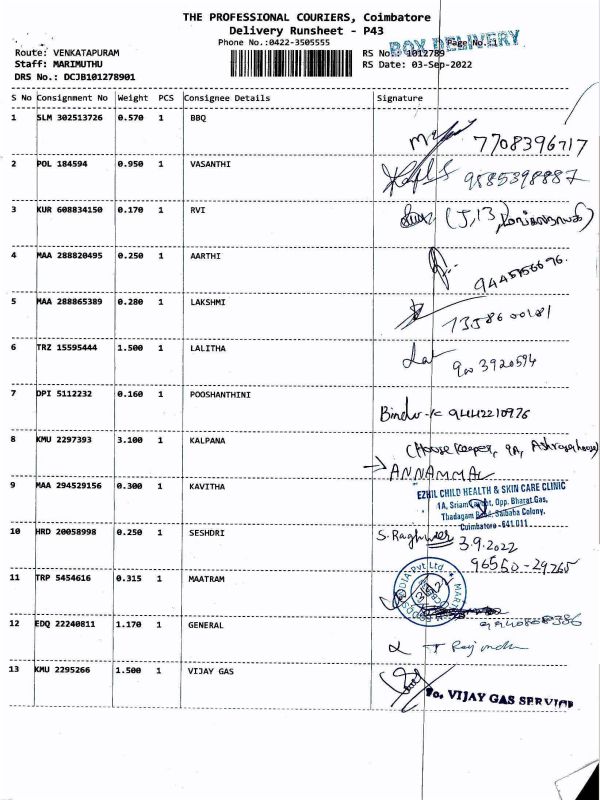 THE PROFESSIONAL COURIERS, Coimbatore
Delivery Runsheet - P43
Phone No.:0422-3505555
BOX DELIVERY
Page No.:1
Route: VENKATAPURAM
RS No.: 1012789
Staff: MARIMUTHU
RS Date: 03-Sep-2022
DRS No.: DCJB101278901
S No Consignment No Weight PCS Consignee Details Signature
1 SLM 302513726 0.570 1 BBQ
7708396717
2 POL 184594 0.950 1 VASANTHI
9585398887
3 KUR 608834150 0.170 1 RVI
4 MAA 288820495 0.250 1 AARTHI
5 MAA 288865389 0.280 1 LAKSHMI
6 TRZ 15595444 1.500 1 LALITHA
7 DPI 5112232 0.160 1 POOSHANTHINI
Bindu-k 9442210976
8 KMU 2297393 3.100 1 KALPANA
(House keeper, 9A,
→ ANNAMMAL
9 MAA 294529156 0.300 1 KAVITHA
EZHIL CHILD HEALTH & SKIN CARE CLINIC
1A, Sriam Opp. Bharat Gas,
Thadagam Road, Saibaba Colony,
Coimbatore - 641 011
10 HRD 20058998 0.250 1 SESHDRI
S. Raghuveer 3.9.2022
96560-29265
11 TRP 5454616 0.315 1 MAATRAM
12 EDQ 22240811 1.170 1 GENERAL
13 KMU 2295266 1.500 1 VIJAY GAS
Fo. VIJAY GAS SERVICE